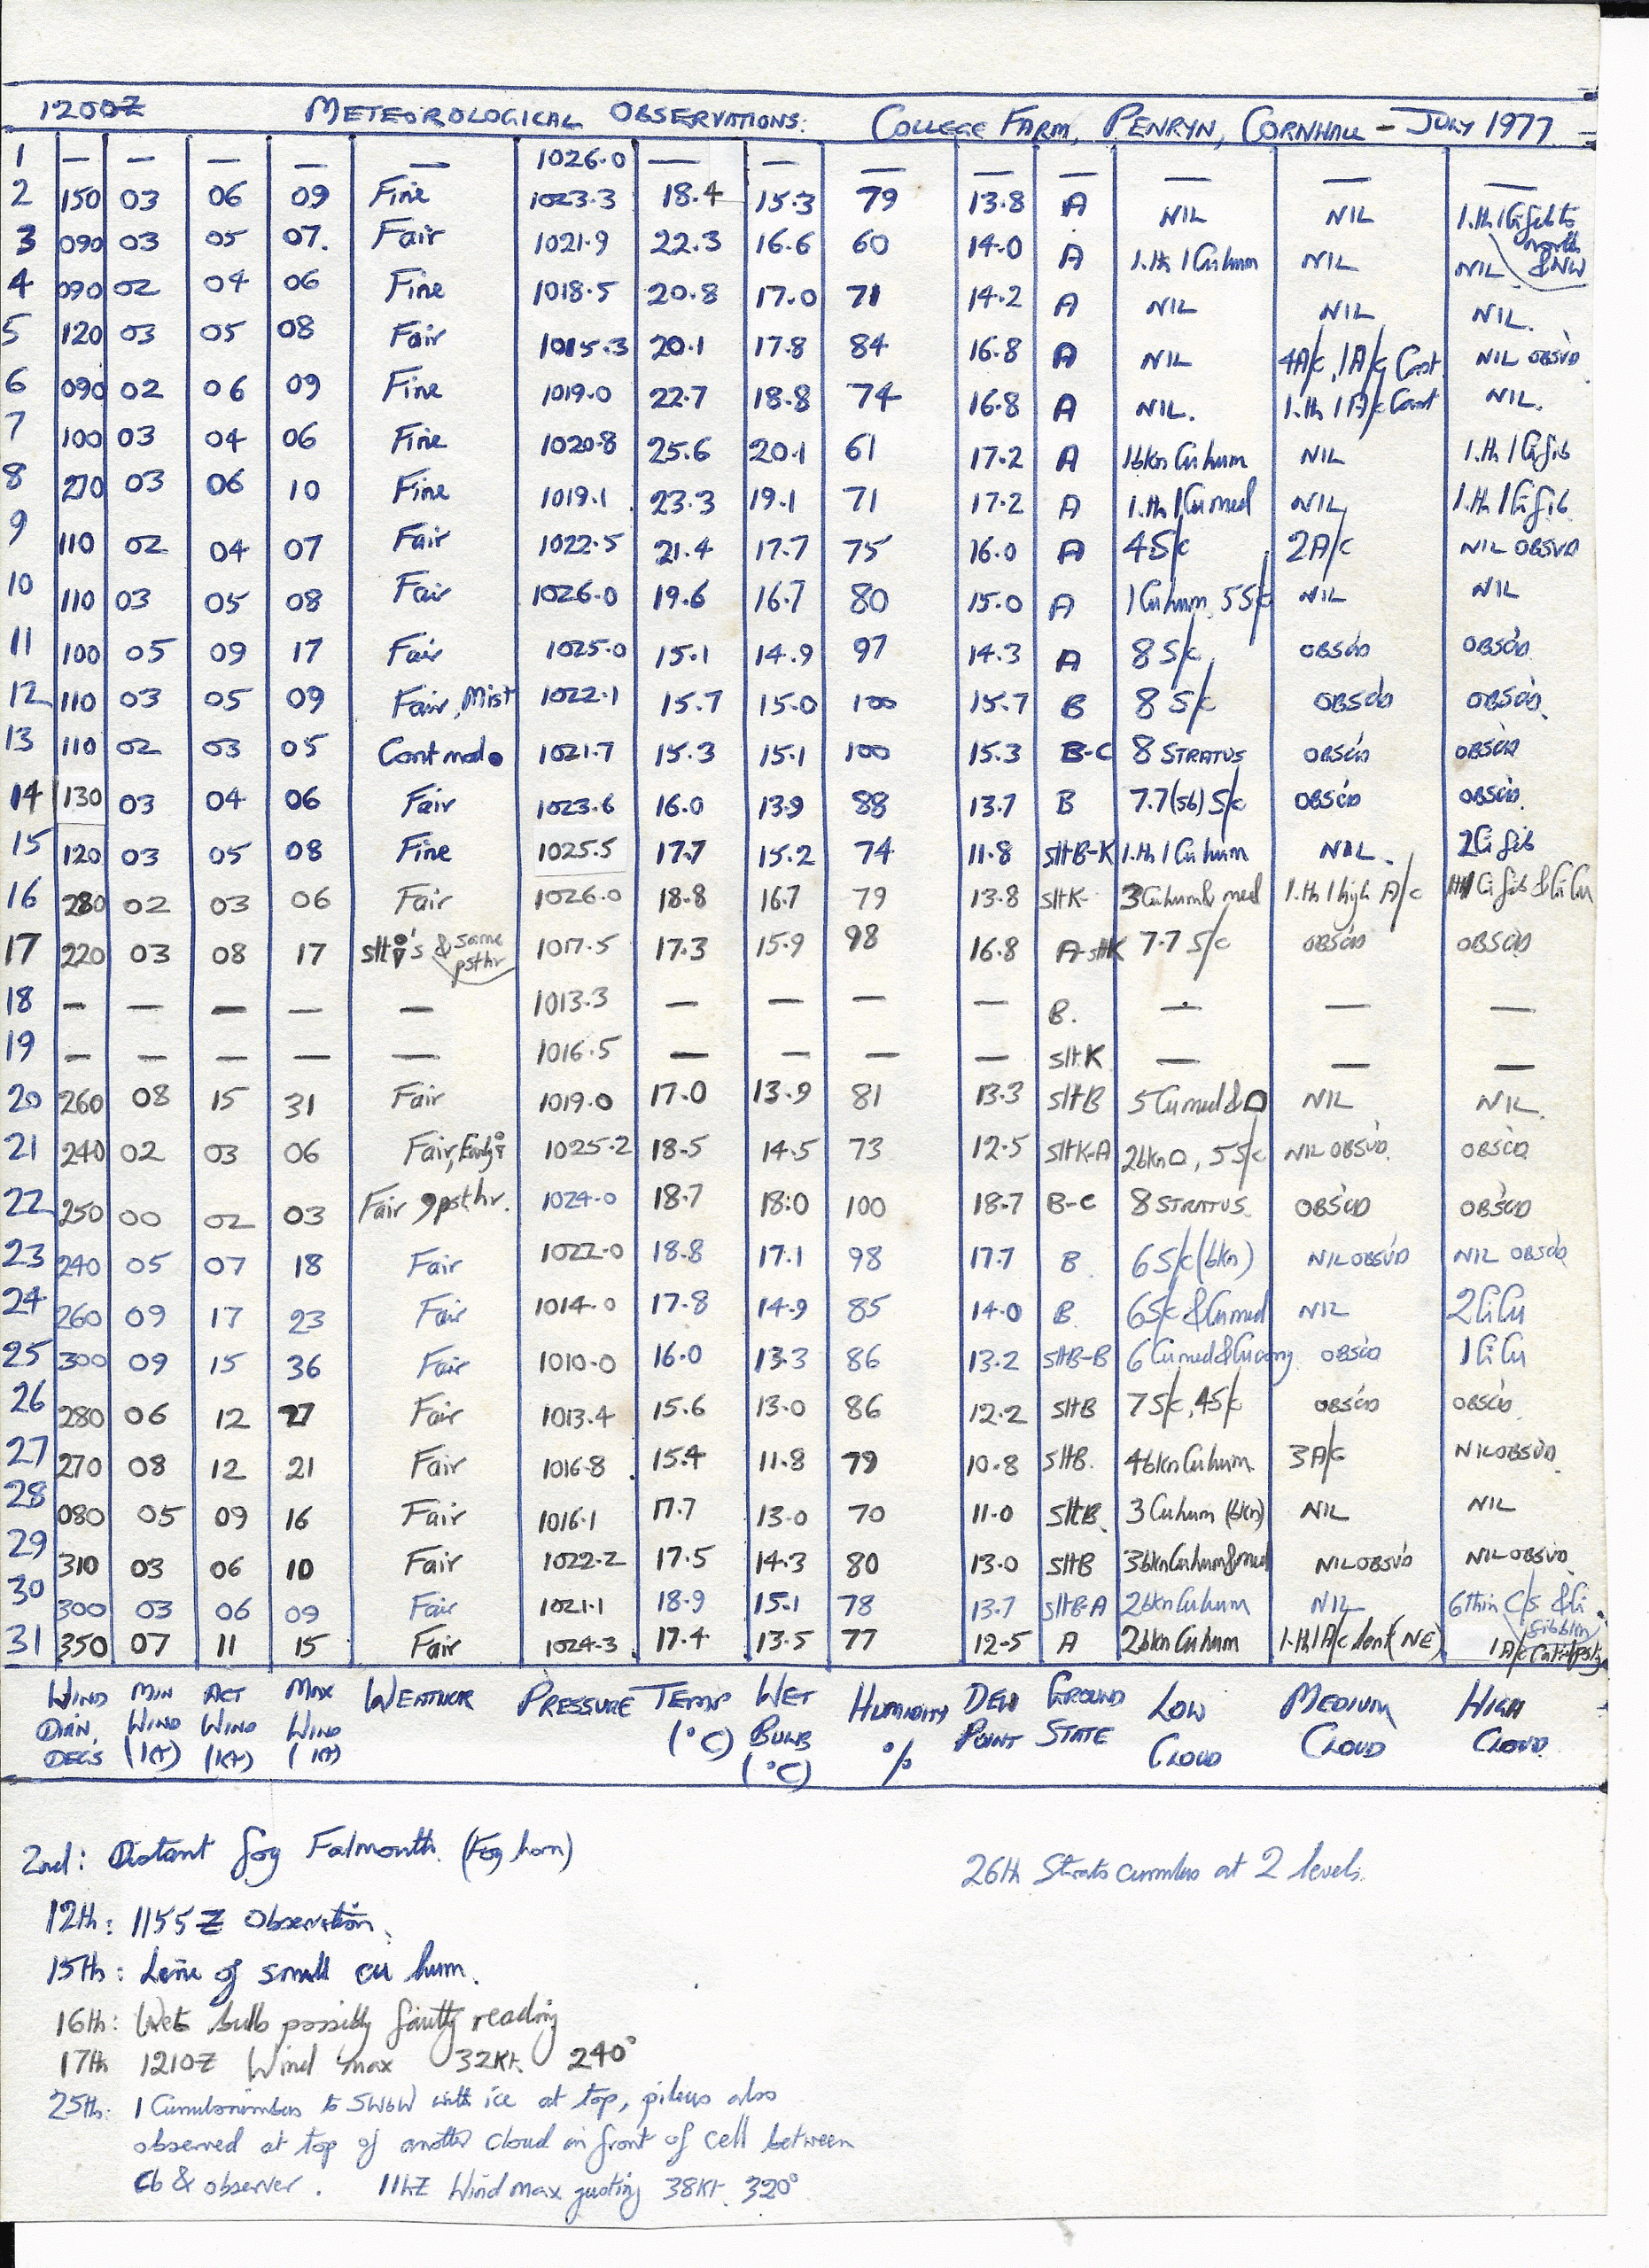 1200Z METEOROLOGICAL OBSERVATIONS: COLLEGE FARM, PENRYN, CORNWALL - JULY 1977
1 — — — — — 1026.0 — — — — — — — —
2 150 03 06 09 Fine 1023.3 18.4 15.3 79 13.8 A NIL NIL 1.th 1 Ci fib to north & NW
3 090 03 05 07. Fair 1021.9 22.3 16.6 60 14.0 A 1.th 1 Cu hum NIL NIL
4 090 02 04 06 Fine 1018.5 20.8 17.0 71 14.2 A NIL NIL NIL.
5 120 03 05 08 Fair 1015.3 20.1 17.8 84 16.8 A NIL 4A/c, 1A/c Cast NIL OBSVD
6 090 02 06 09 Fine 1019.0 22.7 18.8 74 16.8 A NIL. 1.th 1 A/c Cast NIL.
7 100 03 04 06 Fine 1020.8 25.6 20.1 61 17.2 A 1bkn Cu hum NIL 1.th 1 Ci fib
8 270 03 06 10 Fine 1019.1 23.3 19.1 71 17.2 A 1.th 1 Cu med NIL 1.th 1 Ci fib
9 110 02 04 07 Fair 1022.5 21.4 17.7 75 16.0 A 4S/c 2A/c NIL OBSVD
10 110 03 05 08 Fair 1026.0 19.6 16.7 80 15.0 A 1 Cu hum, 5S/c NIL NIL
11 100 05 09 17 Fair 1025.0 15.1 14.9 97 14.3 A 8 S/c OBSCD OBSCD
12 110 03 05 09 Fair, Mist 1022.1 15.7 15.0 100 15.7 B 8 S/c OBSCD OBSCD
13 110 02 03 05 Cont mod ● 1021.7 15.3 15.1 100 15.3 B-C 8 STRATUS OBSCD OBSCD
14 130 03 04 06 Fair 1023.6 16.0 13.9 88 13.7 B 7.7 (sb) S/c OBSCD OBSCD
15 120 03 05 08 Fine 1025.5 17.7 15.2 74 11.8 sltB-K 1.th 1 Cu hum NIL. 2Ci fib
16 280 02 03 06 Fair 1026.0 18.8 16.7 79 13.8 sltK 3Cu hum & med 1.th 1 high A/c Ci fib & Ci Cu
17 220 03 08 17 slt 's & some psthr 1017.5 17.3 15.9 98 16.8 A-sltK 7.7 S/c OBSCD OBSCD
18 — — — — — 1013.3 — — — — B. — — —
19 — — — — — 1016.5 — — — — sltK — — —
20 260 08 15 31 Fair 1019.0 17.0 13.9 81 13.3 sltB 5 Cu med & NIL NIL.
21 240 02 03 06 Fair, Early 1025.2 18.5 14.5 73 12.5 sltK-A 2bkn, 5S/c NIL OBSVD. OBSCD
22 250 00 02 03 Fair, psthr. 1024.0 18.7 18.0 100 18.7 B-C 8 STRATUS. OBSCD OBSCD
23 240 05 07 18 Fair 1022.0 18.8 17.1 98 17.7 B 6 S/c (bkn) NIL OBSVD NIL OBSVD
24 260 09 17 23 Fair 1014.0 17.8 14.9 85 14.0 B 6S/c & Cu med NIL 2CiCu
25 300 09 15 36 Fair 1010.0 16.0 13.3 86 13.2 sltB-B 6 Cu med & Cu cong. OBSCD 1CiCu
26 280 06 12 27 Fair 1013.4 15.6 13.0 86 12.2 sltB 7S/c, 4S/c OBSCD OBSCD
27 270 08 12 21 Fair 1016.8 15.4 11.8 79 10.8 sltB. 4bkn Cu hum. 3A/c NIL OBSVD
28 080 05 09 16 Fair 1016.1 17.7 13.0 70 11.0 sltB. 3 Cu hum (bkn) NIL NIL
29 310 03 06 10 Fair 1022.2 17.5 14.3 80 13.0 sltB 3bkn Cu hum & med NIL OBSVD NIL OBSVD
30 300 03 06 09 Fair 1021.1 18.9 15.1 78 13.7 sltB-A 2bkn Cu hum NIL 6 thin C/s & Ci fib bkn
31 350 07 11 15 Fair 1024.3 17.4 13.5 77 12.5 A 2bkn Cu hum 1.th 1 A/c lent (NE) 1A/c
WIND DIRN. DEG'S MIN WIND (KT) ACT WIND (KT) MAX WIND (KT) WEATHER PRESSURE TEMP (°C) WET BULB (°C) HUMIDITY % DEW POINT GROUND STATE LOW CLOUD MEDIUM CLOUD HIGH CLOUD
2nd: Distant fog Falmouth. (Fog horn)
26th Strato cumulus at 2 levels.
12th: 1155Z Observation.
15th: Line of small cu hum.
16th: Wet bulb possibly faulty reading
17th 1210Z Wind max 32Kt. 240°
25th: 1 Cumulonimbus to SWbW with ice at top, pileus also
observed at top of another cloud in front of cell between
Cb & observer. 11hZ Wind max gusting 38Kt. 320°